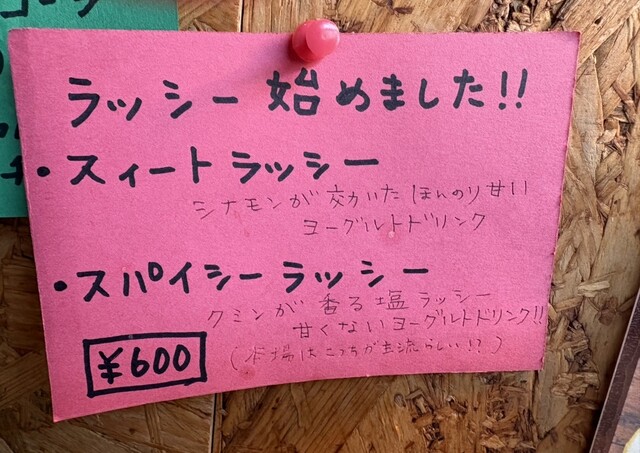 ラッシー 始めました!!
・スィートラッシー
シナモンが 効いた ほんのり甘い
ヨーグルトドリンク
・スパイシーラッシー
クミンが 香る 塩ラッシー
甘くないヨーグルトドリンク!!
(本場はこっちが主流らしい!?)
¥600